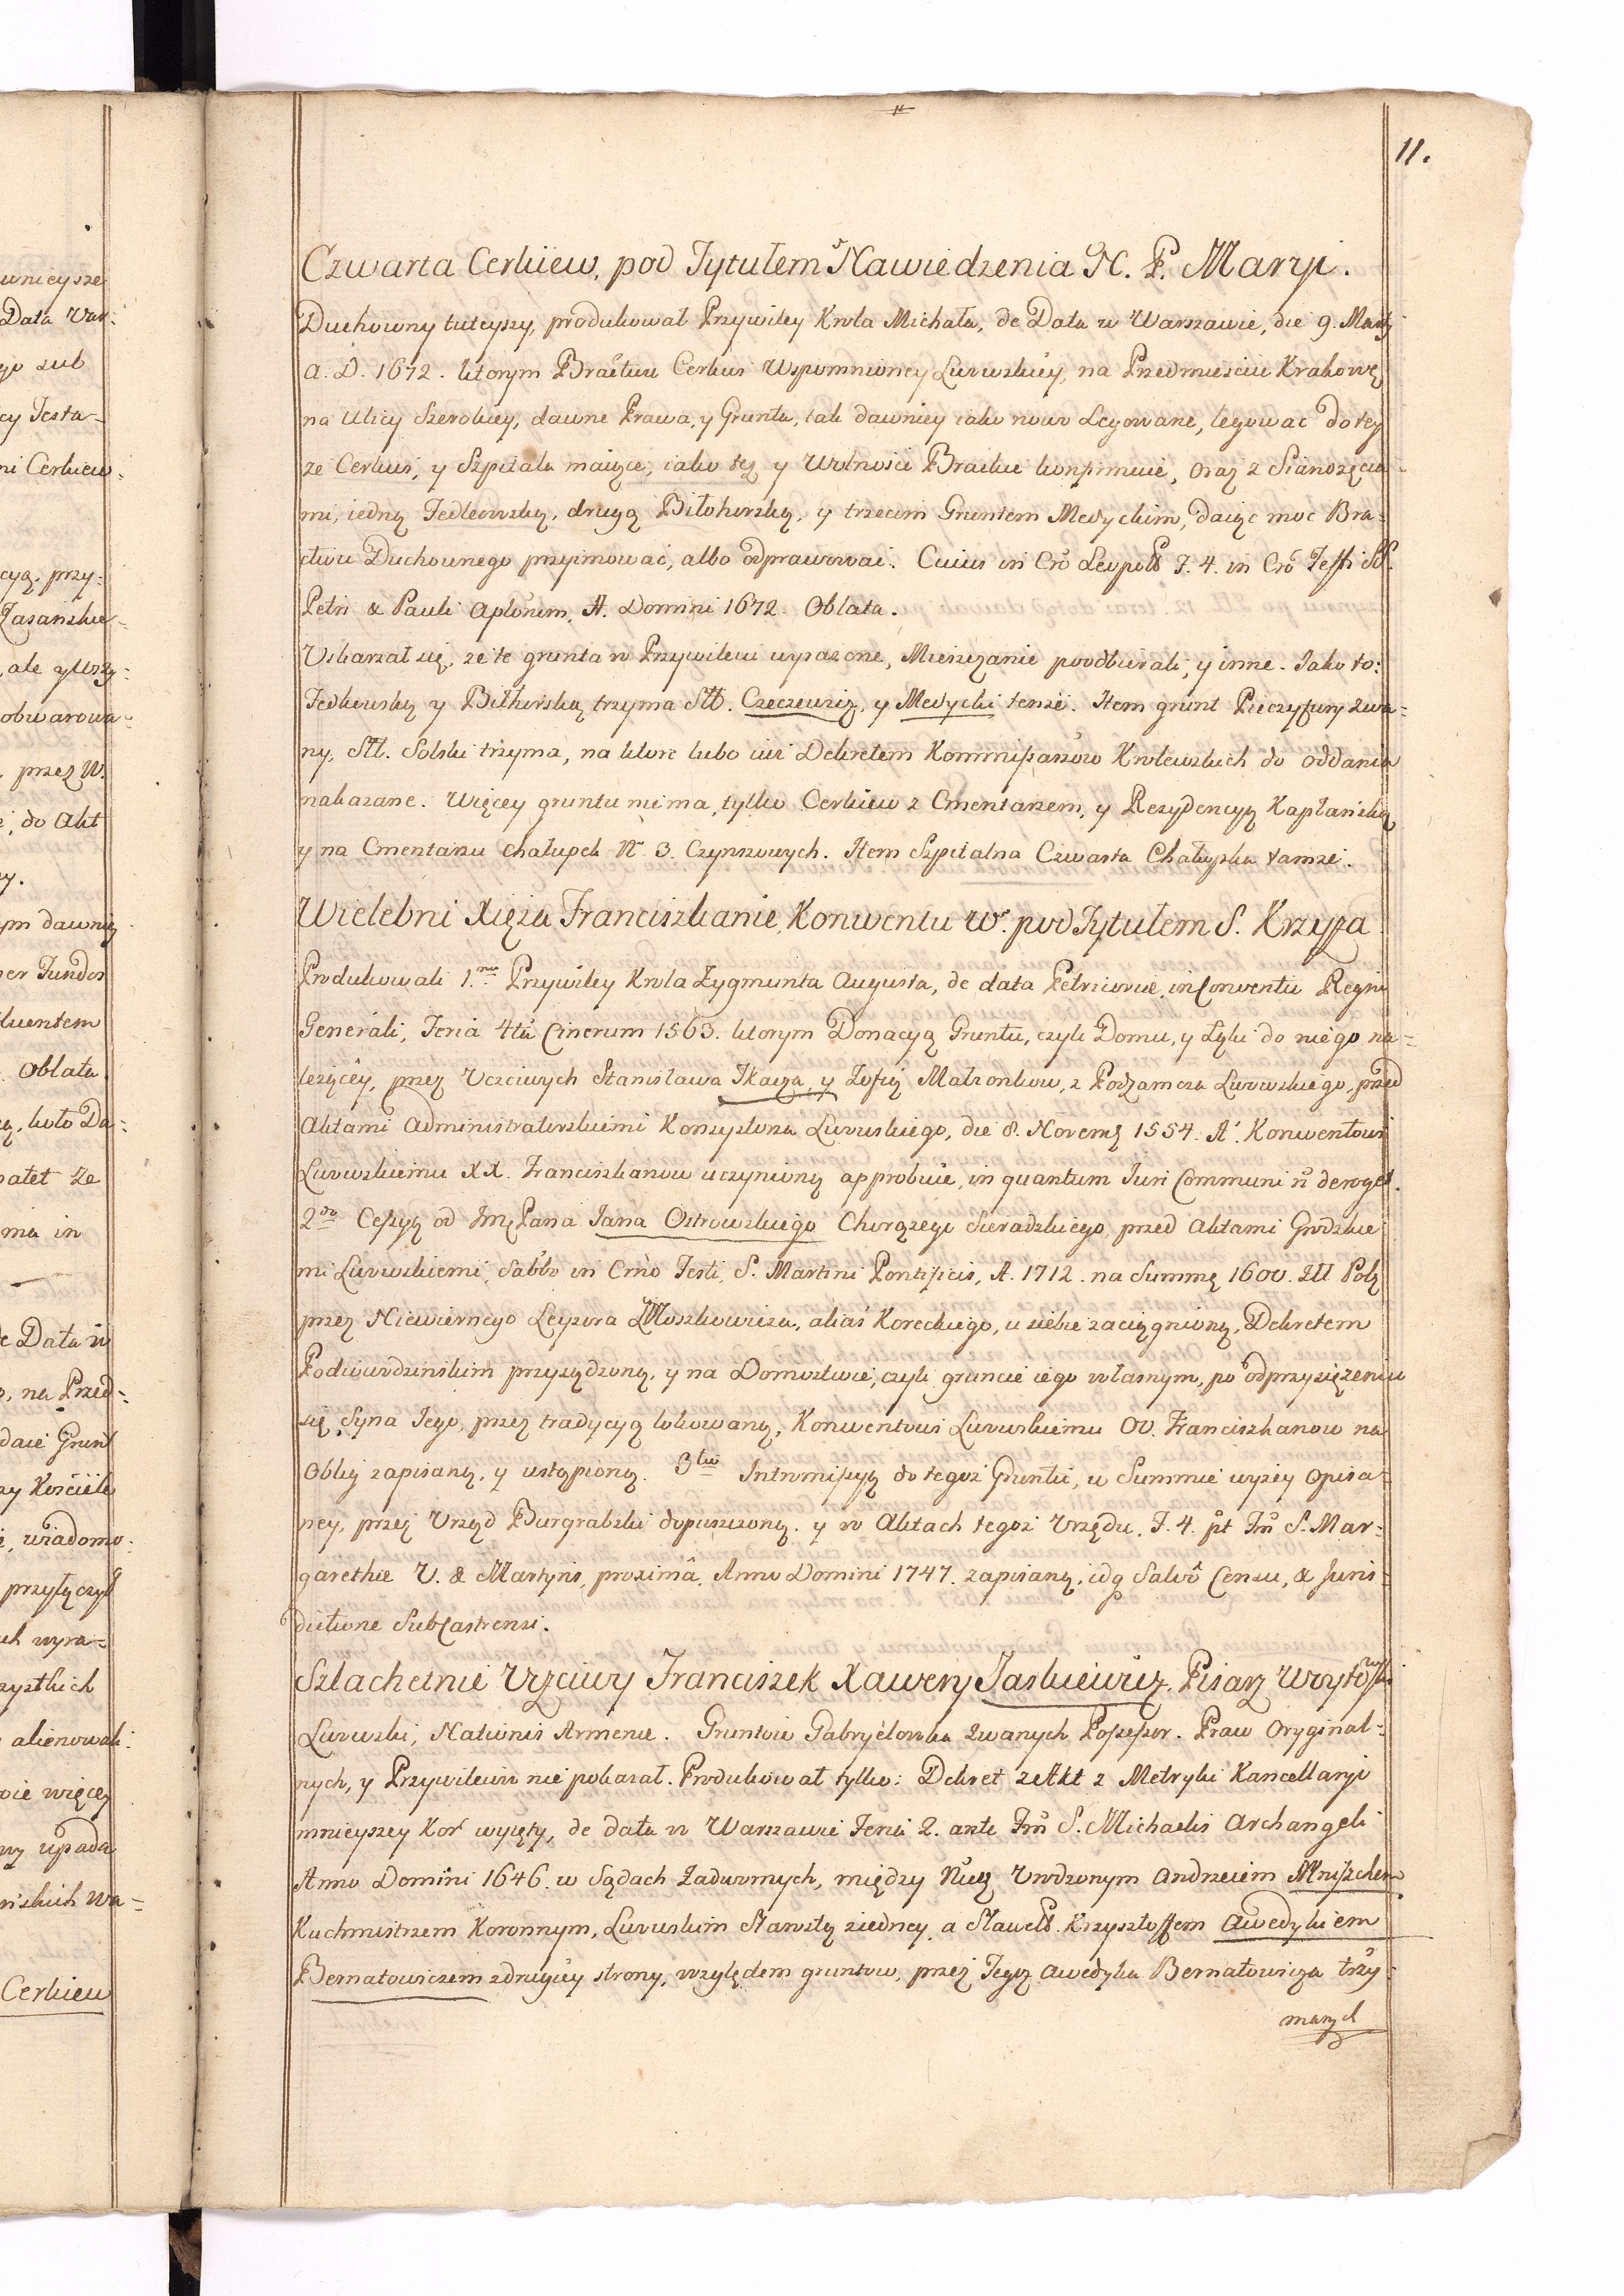 11.
Czwarta Cerkiew, pod Tytułem Nawiedzenia N. P. Maryi.
Duchowny tuteyszy, produkował Przywiley Krola Michała, de Data w Warszawie, die 9. Martij
A. D. 1672. ktorym Bractwu Cerkwi Wspomnioney Lwowskiey, na Przedmieściu Krakowę
na Ulicy Szerokiey, dawne Prawa, y Grunta, tak dawniey iako nowo Legowane, legować do tey
że Cerkwi, y Szpitala maiące, iako też y Wolności Brackie konfirmuie, oraz z Sianożęcia-
mi, iedną Fedkowską, drugą Biłohorską, y trzecim Gruntem Medyckim, daiąc moc Bra-
ctwu Duchownego przyimować, albo odprawować. Cuius in Cró Leopold F. 4. in Cró Festi SS.
Petri & Pauli Aplorum, A. Domini 1672. Oblata.
Uskarżał się, że te grunta w Przywileiu wyrażone, Mieszczanie poodbierali, y inne. Jako to:
Fedkowską y Biłhorską trzyma Sll. Czeczewicz, y Medycki tenże. Item grunt Pieczyfury zwa-
ny, Sll. Solski trzyma, na ktore lubo iuż Dekretem Kommissarzow Krolewskich do oddania
nakazane. Więcey gruntu niema, tylko Cerkiew z Cmentarzem, y Rezydencyą Kapłańską
y na Cmentarzu chałupek Nr. 3. Czynszowych. Item Szpitalna Czwarta Chałupka tamże.
Wielebni Xięża Franciszkanie, Konwentu Lw. pod Tytułem S. Krzyża
Produkowali 1.mo Przywiley Krola Zygmunta Augusta, de data Petricoviae, in Conventu Regni
Generali, Feria 4tâ Cinerum 1563. ktorym Donacyą Gruntu, czyli Domu, y Łąki do niego na-
leżącey, przez Uczciwych Stanisława Tkacza, y Zofią Małżonkow, z Podzamcza Lwowskiego, przed
Aktami Administratorskiemi Konsystorza Lwowskiego, die 8. Novemb 1554. A. Konwentowi
Lwowskiemu XX. Franciszkanow uczynioną approbuie, in quantum Juri Communi n̄ deroget.
2do Cessyą od Jmę Pana Jana Ostrowskiego Chorążego Sieradzkiego, przed Aktami Grodzkie
mi Lwowskiemi, Sabbo in Crno Festi, S. Martini Pontificis, A. 1712. na Summę 1600. Zll Pols
przez Niewiernego Leyzora Moszkowicza, alias Koreckiego, u siebie zaciągnioną, Dekretem
Podwowodzinskim przysądzoną, y na Domostwie, czyli gruncie iego własnym, po odprzysiężeniu
się Syna Jego, przez tradycyą lokowaną, Konwentowi Lwowskiemu OO. Franciszkanow na
Oblig zapisaną, y ustąpioną. 3tio Intromissyą do tegoż Gruntu, w Summie wyżey opisa-
ney, przez Urząd Burgrabski dopuszczoną. y w Aktach tegoż Urzędu, F. 4. pt Fm̄ S. Mar-
garethae V. & Martyris, proximâ, Anno Domini 1747. zapisaną, idq Salvô Censu, & Juris-
dictione SubCastrensi.
Szlachetnie Uczciwy Franciszek Xawery Jaskiewicz, Pisarz Woytowski
Lwowski, Nationis Armenae. Gruntow Gabryelowka zwanych Possessor. Praw Oryginal-
nych, y Przywileiow nie pokazał. Produkował tylko: Dekret zetkt z Metryki Kancellaryi
mnieyszey Kor wyięty, de data w Warszawie Feria 2. ante Fm̄ S. Michaelis Archangeli
Anno Domini 1646. w Sądach Zadwornych, między Urodzonym Andrzeiem Mniszchem
Kuchmistrzem Koronnym, Lwowskim Starostą ziedney, a Sławetd. Krzysztoffem Awedykiem
Bernatowiczem zdrugiey strony, względem gruntow, przez Tegoż Awedyka Bernatowicza trzy-
manych